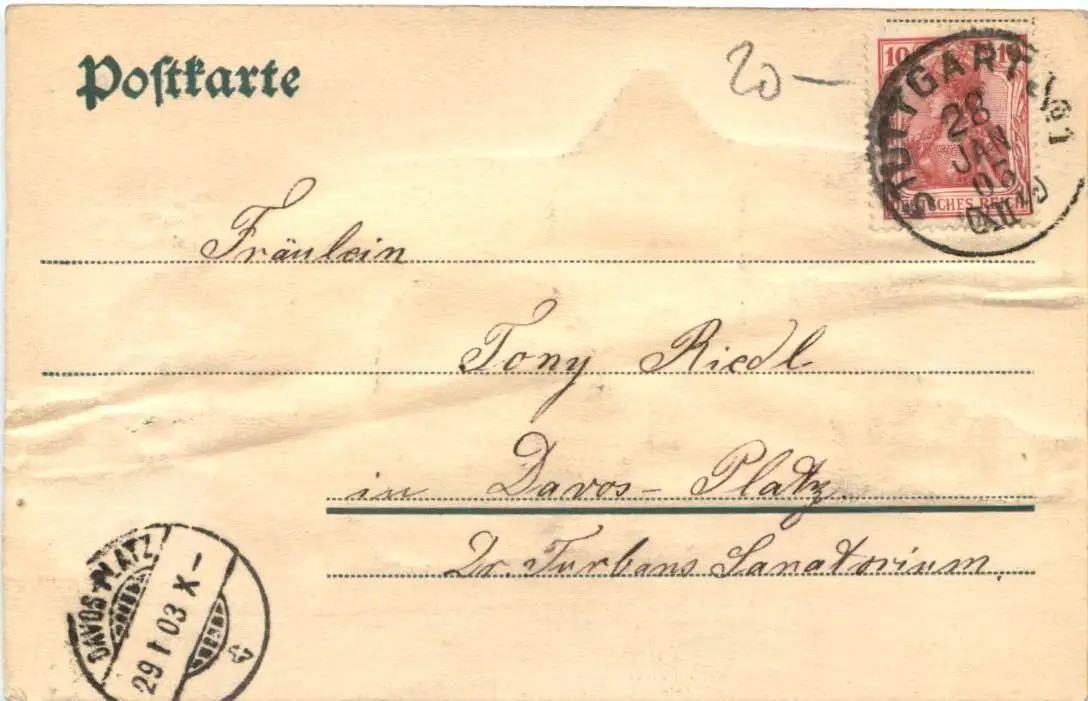 Postkarte
20 –
10 10
DEUTSCHES REICH
STUTTGART
28
JAN
Fräulein
Tony Riedl
in Davos-Platz
Dr. Turbans Sanatorium.
DAVOS-PLATZ
29 I 03 X-